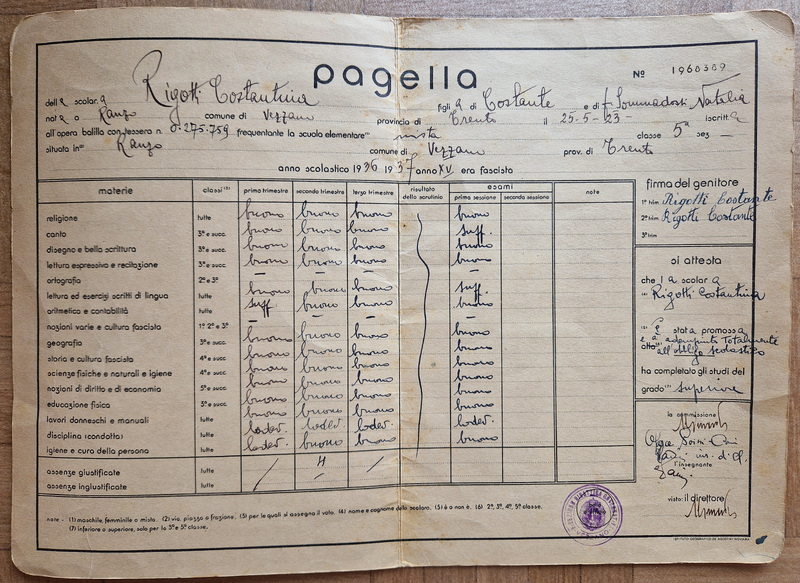 pagella
Nº 1960309
dell a scolar a Rigotti Costantina figli a di Costante e di f Sommadossi Natalia
nat a a Ranzo comune di Vezzano provincia di Trento il 25-5-23- iscritt a
all'opera balilla con tessera n. 0.275.759 frequentante la scuola elementare⁽¹⁾ mista classe 5ª sez —
situata in⁽²⁾ Ranzo comune di Vezzano prov. di Trento
anno scolastico 1936 1937 anno XV era fascista
materie classi⁽³⁾ primo trimestre secondo trimestre terzo trimestre risultato dello scrutinio esami prima sessione seconda sessione note
religione tutte buono buono buono buono
canto 3ª e succ. buono buono buono suff.
disegno e bella scrittura 3ª e succ. buono buono buono buono
lettura espressiva e recitazione 3ª e succ. buono buono buono buono
ortografia 2ª e 3ª — — — —
lettura ed esercizi scritti di lingua tutte buono buono buono suff.
aritmetica e contabilità tutte suff. buono buono buono
nozioni varie e cultura fascista 1ª 2ª e 3ª — — — —
geografia 3ª e succ. buono buono buono buono
storia e cultura fascista 4ª e succ. buono buono buono buono
scienze fisiche e naturali e igiene 4ª e succ. buono buono buono buono
nozioni di diritto e di economia 5ª e succ. buono buono buono buono
educazione fisica tutte buono buono buono buono
lavori donneschi e manuali tutte buono buono buono buono
disciplina (condotta) tutte lodev. lodev. lodev. lodev.
igiene e cura della persona tutte lodev. buono buono buono
assenze giustificate tutte / 4 /
assenze ingiustificate tutte / — /
firma del genitore
1º trim Rigotti Costante
2º trim Rigotti Costante
3º trim
si attesta
che l a scolar a
⁽⁴⁾ Rigotti Costantina
⁽⁵⁾ È stat a promoss a
e ha adempiuto totalmente
all'obbligo scolastico
ha completato gli studi del
grado⁽⁷⁾ superiore
la commissione
l'insegnante
visto: il direttore
note - (1) maschile, femminile o mista. (2) via, piazza o frazione. (3) per le quali si assegna il voto. (4) nome e cognome dello scolaro. (5) è o non è. (6) 2ª, 3ª, 4ª, 5ª classe.
(7) inferiore o superiore, solo per la 3ª e 5ª classe.
ISTITUTO GEOGRAFICO DE AGOSTINI NOVARA